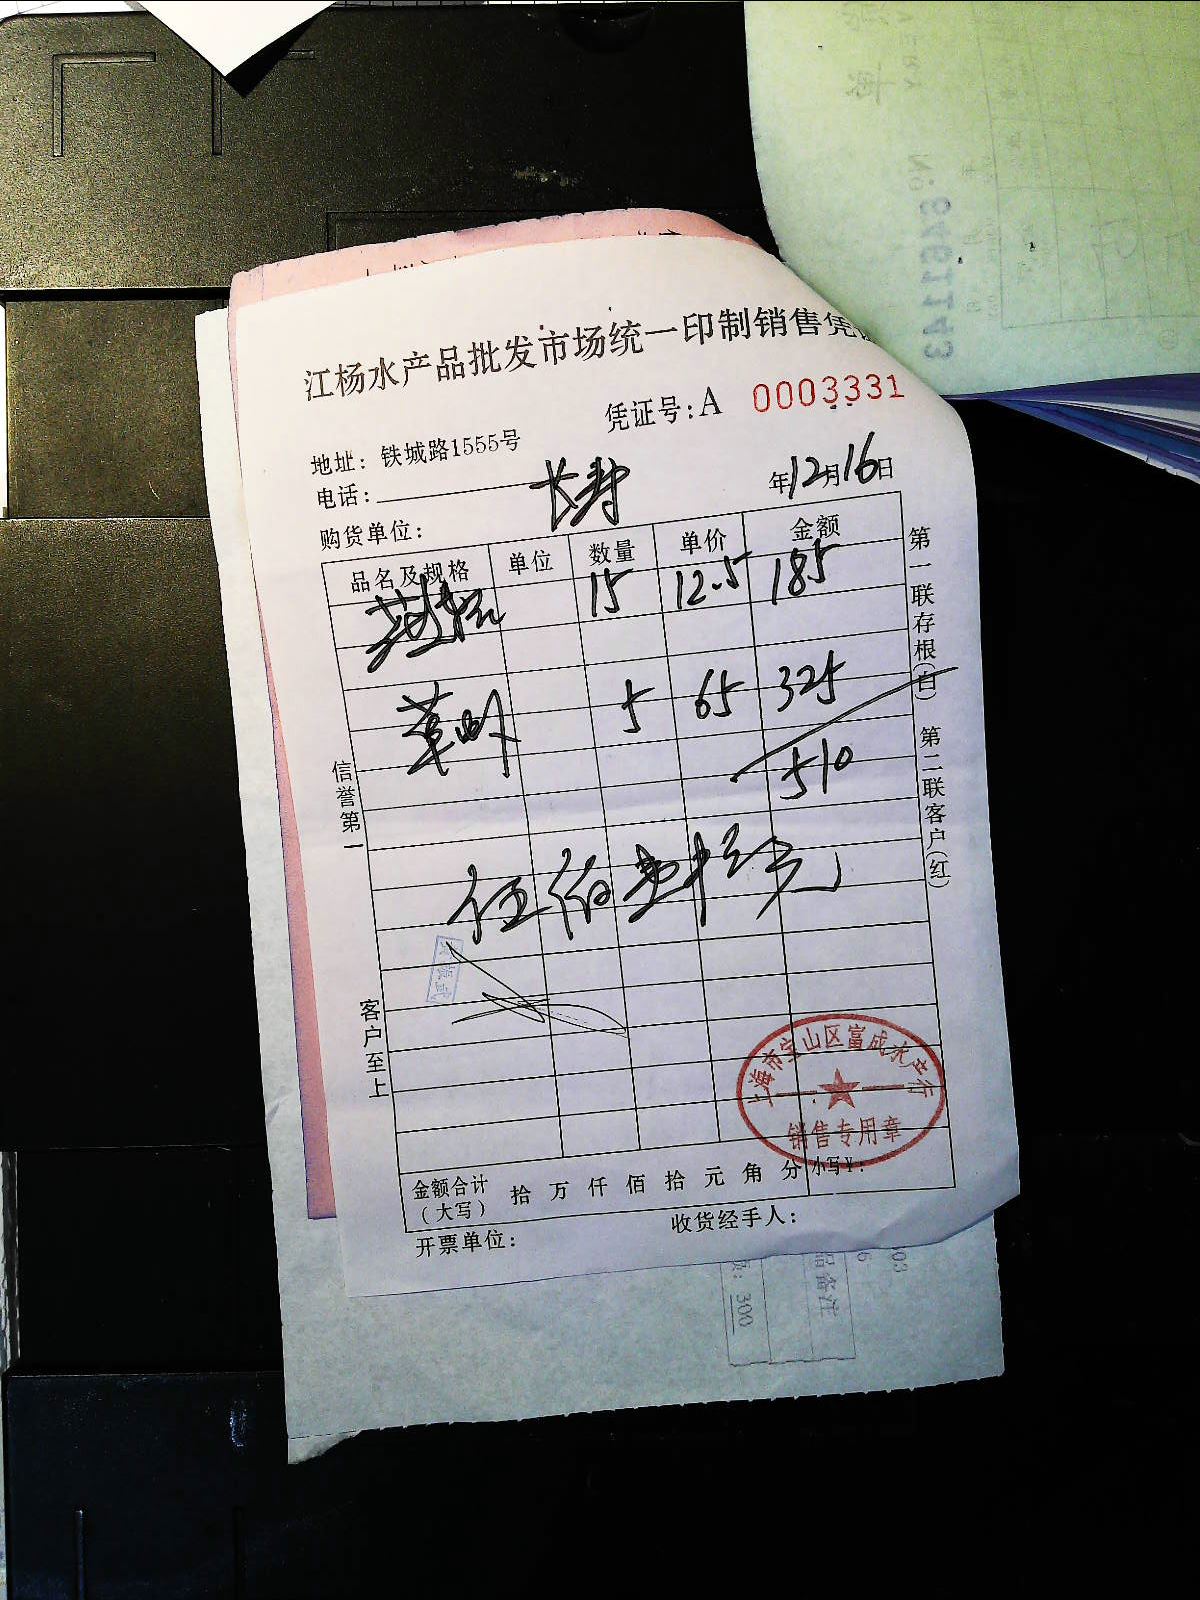 江杨水产品批发市场统一印制销售凭
凭证号:A 0003331
地址: 铁城路1555号
电话:
购货单位: 长寿 年12月16日
品名及规格 单位 数量 单价 金额
15 12.5 185
草虾 5 65 325
510
伍佰壹拾元
信誉第一
客户至上
第一联存根(白) 第二联客户(红)
上海市宝山区富成水产行
销售专用章
金额合计(大写) 拾 万 仟 佰 拾 元 角 分 小写¥:
开票单位: 收货经手人:
No 8461143
VERY
300
品备注